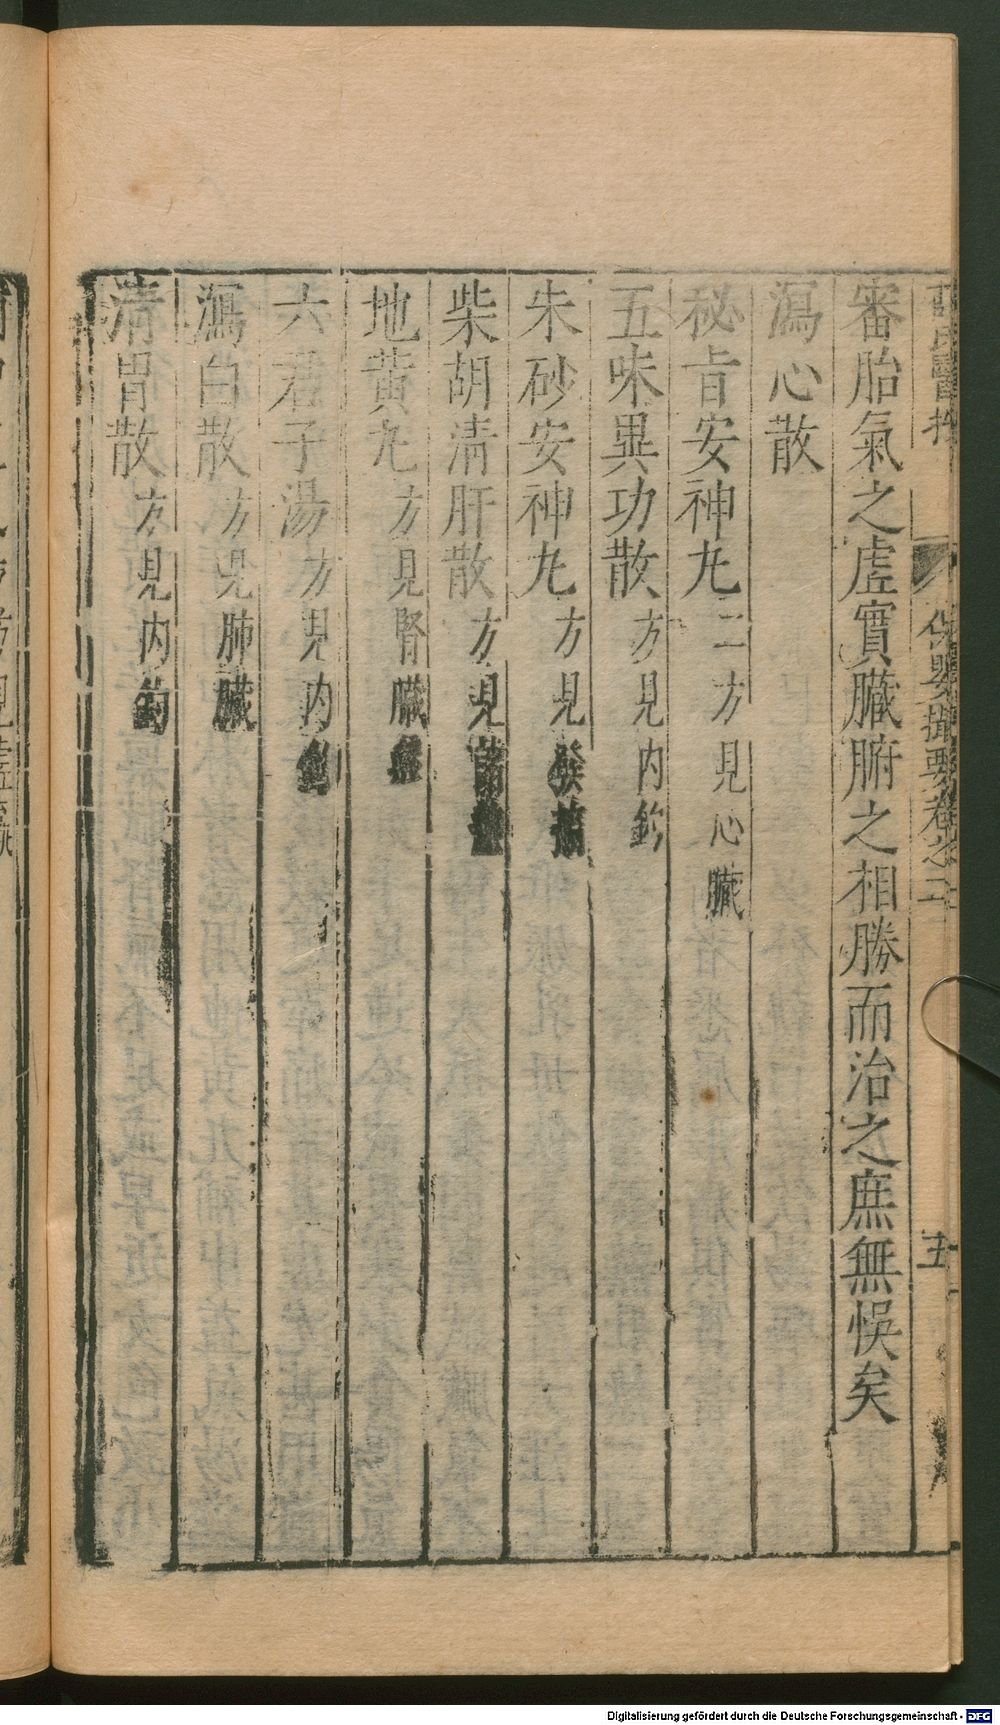 薛氏醫按 保嬰撮要卷之二 五
審胎氣之虛實臟腑之相勝而治之庶無悞矣
瀉心散
秘旨安神丸二方見心臟
五味異功散方見內釣
朱砂安神丸方見發搐
柴胡清肝散方見
地黃丸方見腎臟
六君子湯方見內釣
瀉白散方見肺臟
清胃散方見內釣
Digitalisierung gefördert durch die Deutsche Forschungsgemeinschaft - DFG